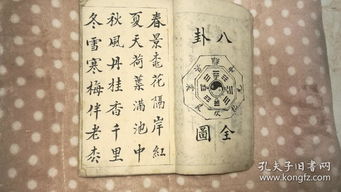 八卦
全圖
春景桃花隔岸紅
夏天荷葉滿池中
秋風丹桂香千里
冬雪寒梅伴老枩
孔夫子旧书网
www.kongfz.com